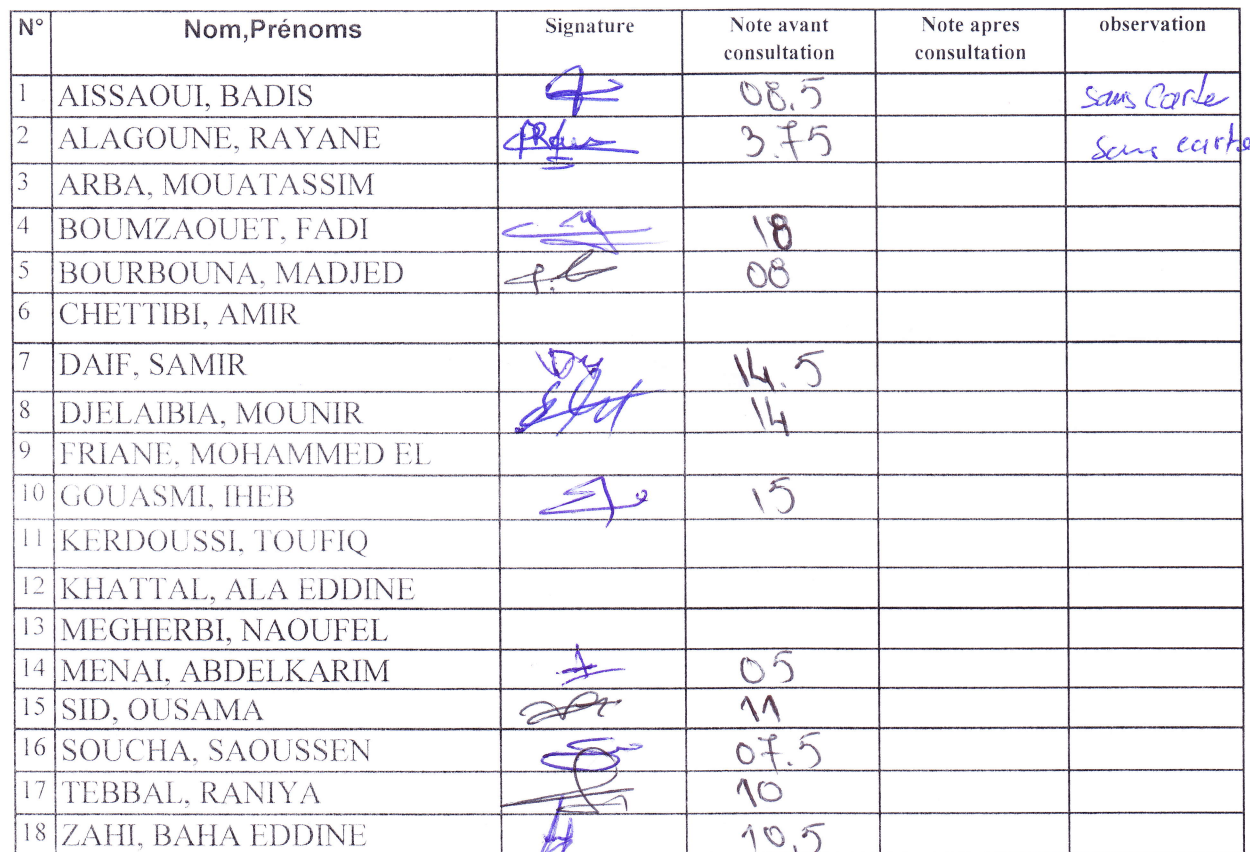 N° Nom,Prénoms Signature Note avant consultation Note apres consultation observation
1 AISSAOUI, BADIS 08.5 sans Carte
2 ALAGOUNE, RAYANE 3.75 sans carte
3 ARBA, MOUATASSIM
4 BOUMZAOUET, FADI 18
5 BOURBOUNA, MADJED 08
6 CHETTIBI, AMIR
7 DAIF, SAMIR 14.5
8 DJELAIBIA, MOUNIR 14
9 FRIANE, MOHAMMED EL
10 GOUASMI, IHEB 15
11 KERDOUSSI, TOUFIQ
12 KHATTAL, ALA EDDINE
13 MEGHERBI, NAOUFEL
14 MENAI, ABDELKARIM 05
15 SID, OUSAMA 11
16 SOUCHA, SAOUSSEN 07.5
17 TEBBAL, RANIYA 10
18 ZAHI, BAHA EDDINE 10,5